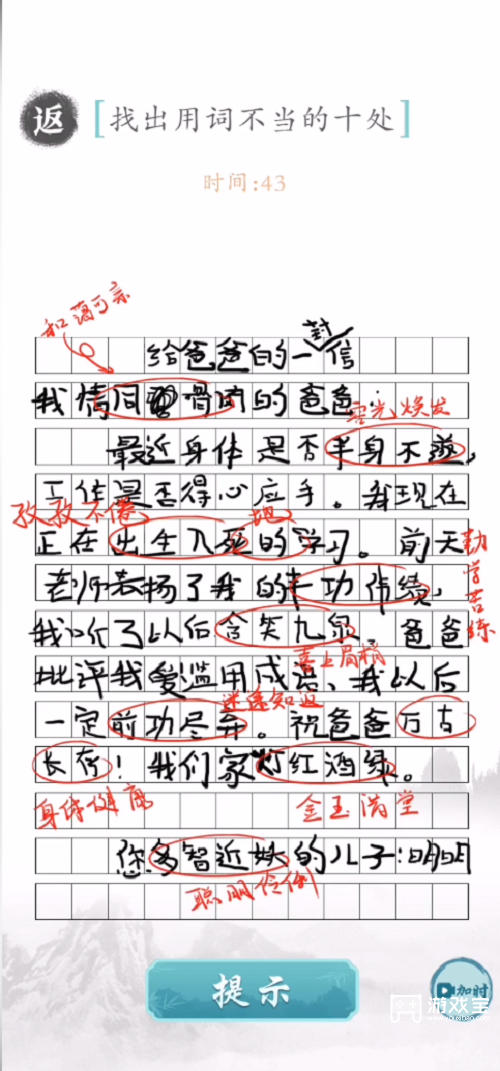 返
[找出用词不当的十处]
时间:43
和蔼可亲
封
给爸爸的一信
我情同骨肉的爸爸:
容光焕发
最近身体是否半身不遂,
工作是否得心应手。我现在
孜孜不倦
地
正在出生入死的学习。前天
勤学苦练
老师表扬了我的丰功伟绩,
我听了以后含笑九泉。爸爸
喜上眉梢
批评我爱滥用成语、我以后
迷途知返
一定前功尽弃。祝爸爸万古
长存!我们家灯红酒绿。
身体健康
金玉满堂
您多智近妖的儿子:明明
聪明伶俐
提示
加时
游戏宝